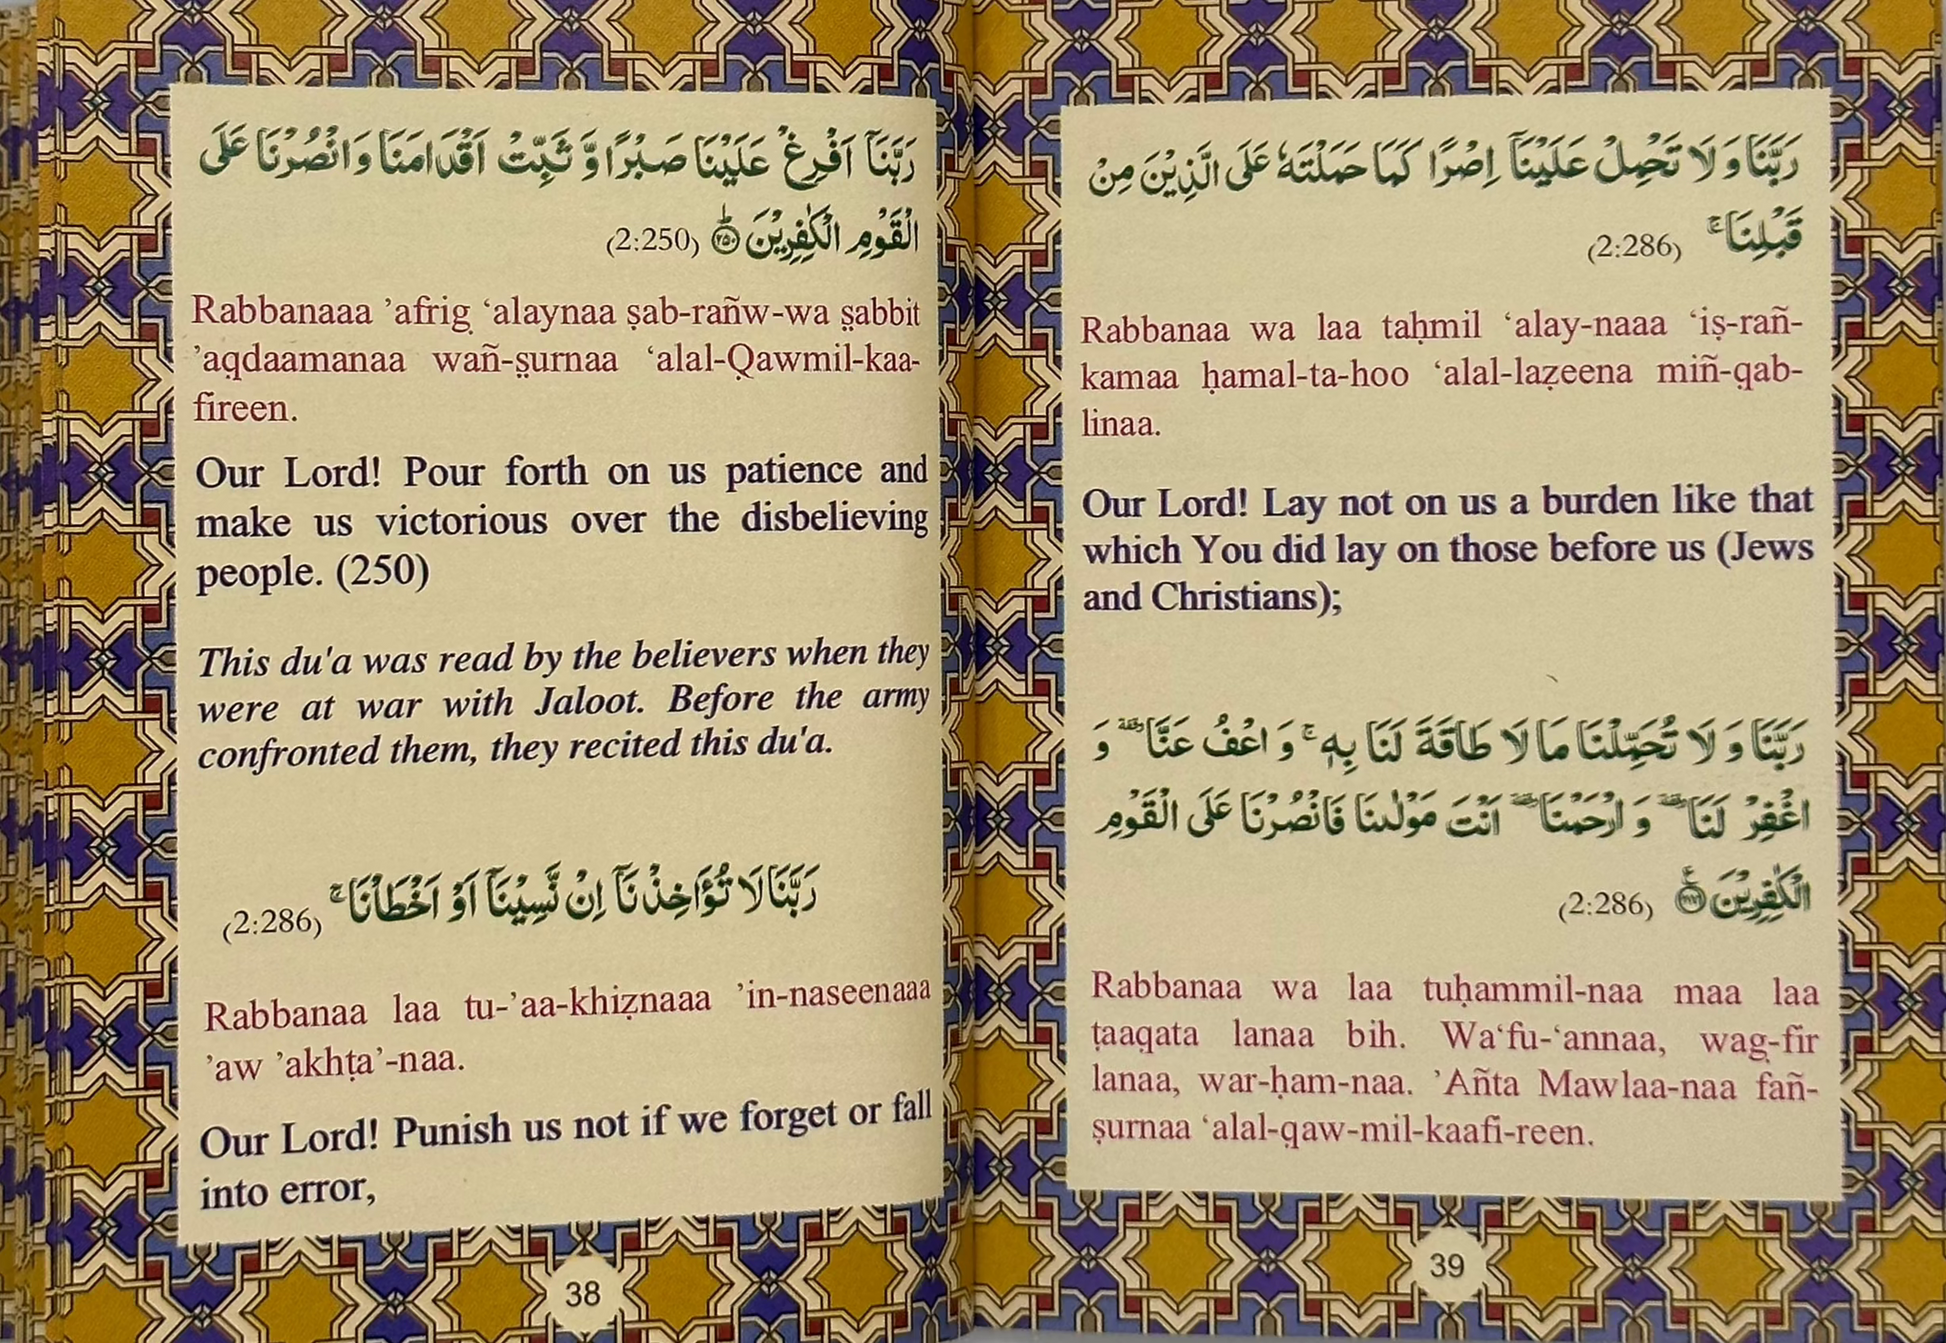 رَبَّنَآ اَفْرِغْ عَلَيْنَا صَبْرًا وَّ ثَبِّتْ اَقْدَامَنَا وَانْصُرْنَا عَلَى
الْقَوْمِ الْكٰفِرِيْنَ ۟ؕ۲۵۰ (2:250)
Rabbanaaa ’afrig̣ ‘alaynaa ṣab-rañw-wa s̤abbit
’aqdaamanaa wañ-s̤urnaa ‘alal-Qawmil-kaa-
fireen.
Our Lord! Pour forth on us patience and
make us victorious over the disbelieving
people. (250)
This du'a was read by the believers when they
were at war with Jaloot. Before the army
confronted them, they recited this du'a.
رَبَّنَا لَا تُؤَاخِذْنَآ اِنْ نَّسِيْنَآ اَوْ اَخْطَاْنَا ۚ (2:286)
Rabbanaa laa tu-’aa-khiẓnaaa ’in-naseenaaa
’aw ’akhṭa’-naa.
Our Lord! Punish us not if we forget or fall
into error,
38
رَبَّنَا وَ لَا تَحْمِلْ عَلَيْنَآ اِصْرًا كَمَا حَمَلْتَهٗ عَلَى الَّذِيْنَ مِنْ
قَبْلِنَا ۚ (2:286)
Rabbanaa wa laa taḥmil ‘alay-naaa ‘iṣ-rañ-
kamaa ḥamal-ta-hoo ‘alal-laẓeena miñ-qab-
linaa.
Our Lord! Lay not on us a burden like that
which You did lay on those before us (Jews
and Christians);
رَبَّنَا وَ لَا تُحَمِّلْنَا مَا لَا طَاقَةَ لَنَا بِهٖ ۚ وَ اعْفُ عَنَّا ۥ وَ
اغْفِرْ لَنَا ۥ وَ ارْحَمْنَا ۥ اَنْتَ مَوْلٰىنَا فَانْصُرْنَا عَلَى الْقَوْمِ
الْكٰفِرِيْنَ (2:286)
Rabbanaa wa laa tuḥammil-naa maa laa
ṭaaqata lanaa bih. Wa‘fu-‘annaa, wag̣-fir
lanaa, war-ḥam-naa. ’Añta Mawlaa-naa fañ-
ṣurnaa ‘alal-qaw-mil-kaafi-reen.
39